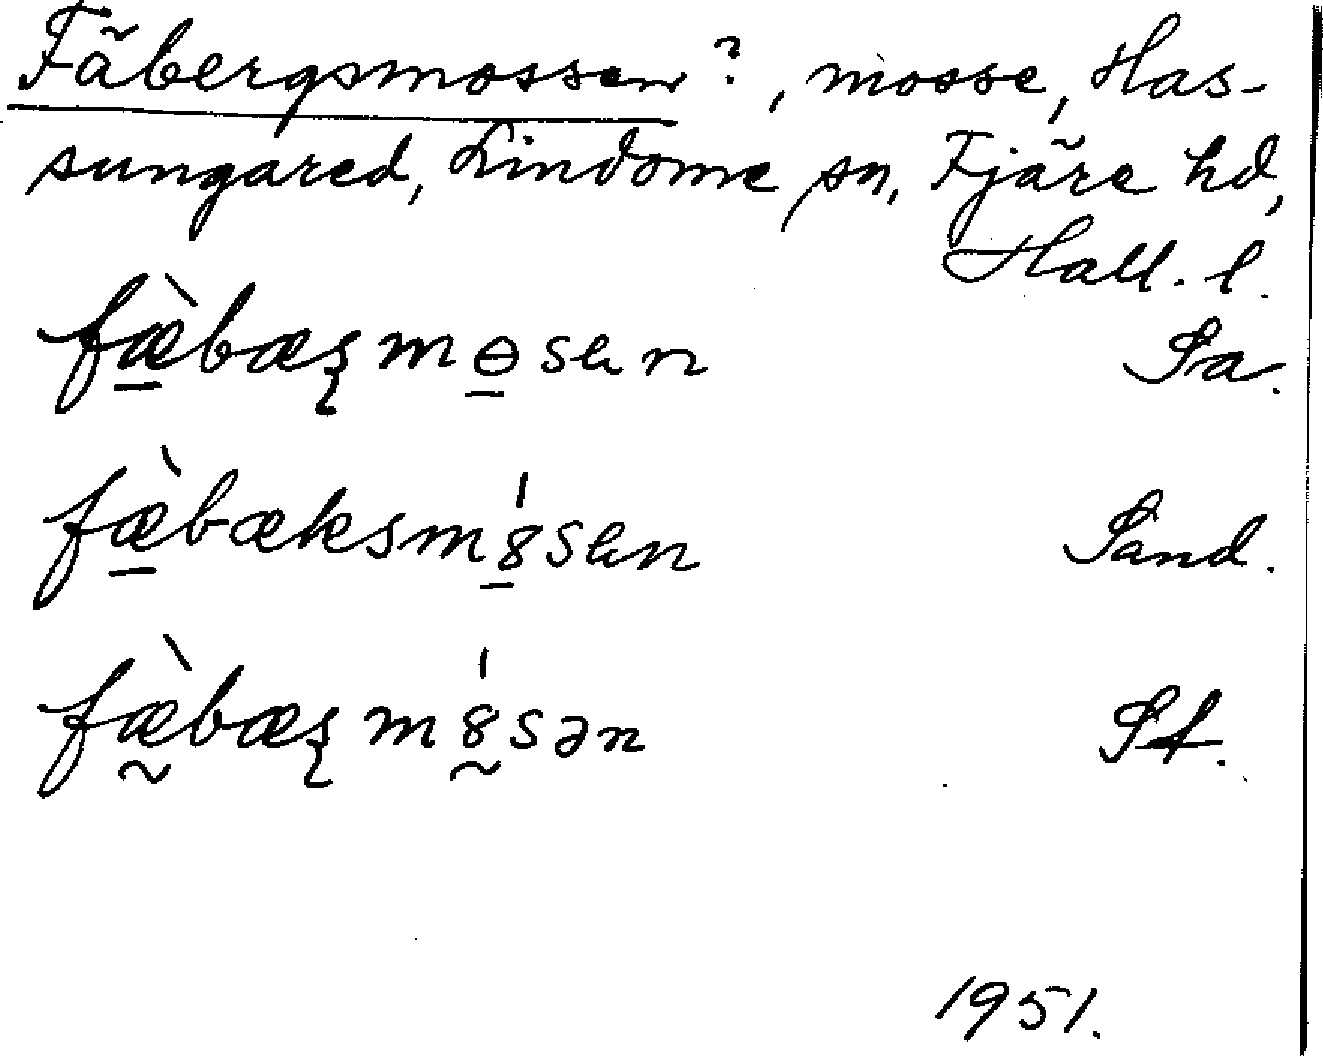 Fäbergsmossen?, mosse, Has-
sungared, Lindome sn, Fjäre hd,
Hall. l.
fæ̱̀bæʂmɵ̱sen Sa.
fæ̱̀bæksm8̱́sen Sand.
fæ̰̀bæʂm8̰́sən Sf.
1951.